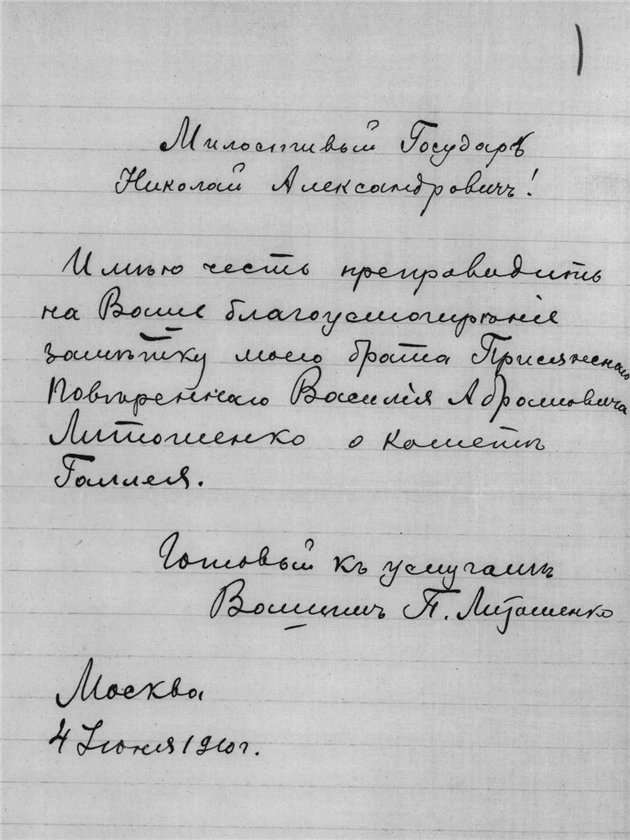 Милостивый Государь
Николай Александровичъ!
Имѣю честь препроводить
на Ваше благоусмотрѣніе
замѣтку моего брата Присяжнаго
Повѣреннаго Василія Абрамовича
Литошенко о кометѣ
Галлея.
Готовый къ услугамъ
П. Литошенко
Москва
4 Іюня 1910 г.